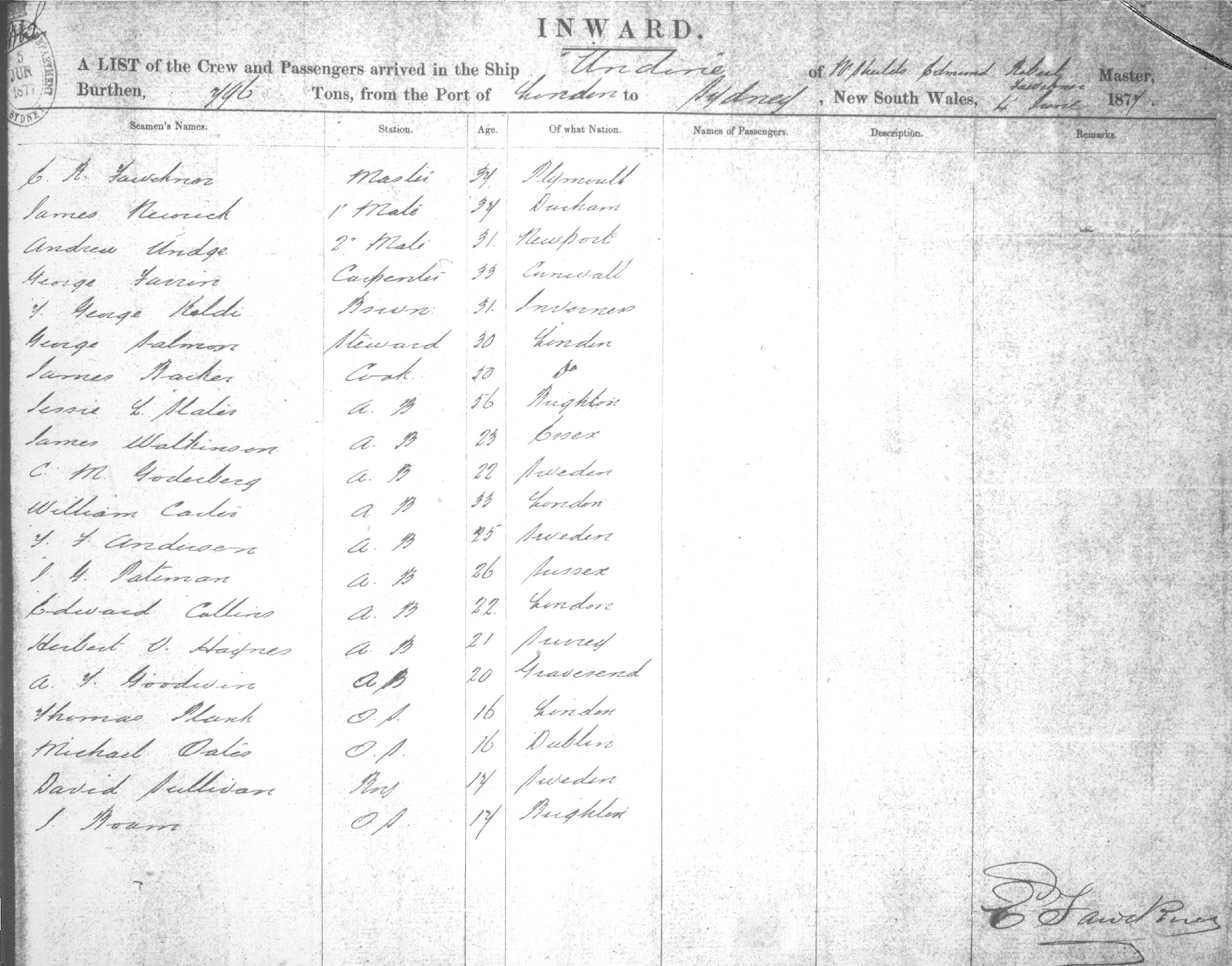 INWARD.
A LIST of the Crew and Passengers arrived in the Ship "Undine" of N. Shields Edmund Roberts Fawckner Master,
Burthen, 796 Tons, from the Port of London to Sydney, New South Wales, June 1877.
Seamen's Names. Station. Age. Of what Nation. Names of Passengers. Description. Remarks.
E R. Fawckner Master 37 Plymouth
James 1st Mate 37 Durham
Andrew Undge 2nd Mate 31. Newport
George Farrin Carpenter 33 Cornwall
George Bosun 31. Inverness
George Salmon Steward 30 London
James Barker Cook 20 Do
Jessie L. Slater A. B 56 Brighton
James Watkinson A. B 23 Essex
C. M. Goderberg A. B 22 Sweden
William Carter A B 33 London
F. F Anderson A. B 25 Sweden
J G. Pateman A. B 26 Sussex
Edward Collins A. B 22. London
Herbert V. Haynes A. B 21 Surrey
A. F. Goodwin A.B 20 Gravesend
Thomas Plank O.S. 16 London
Michael Oates O.S. 16 Dublin
David Sullivan Boy 17 Sweden
J Boam O.S. 17 Brighton
E Fawckner
5
JUN
1877
SYDNEY